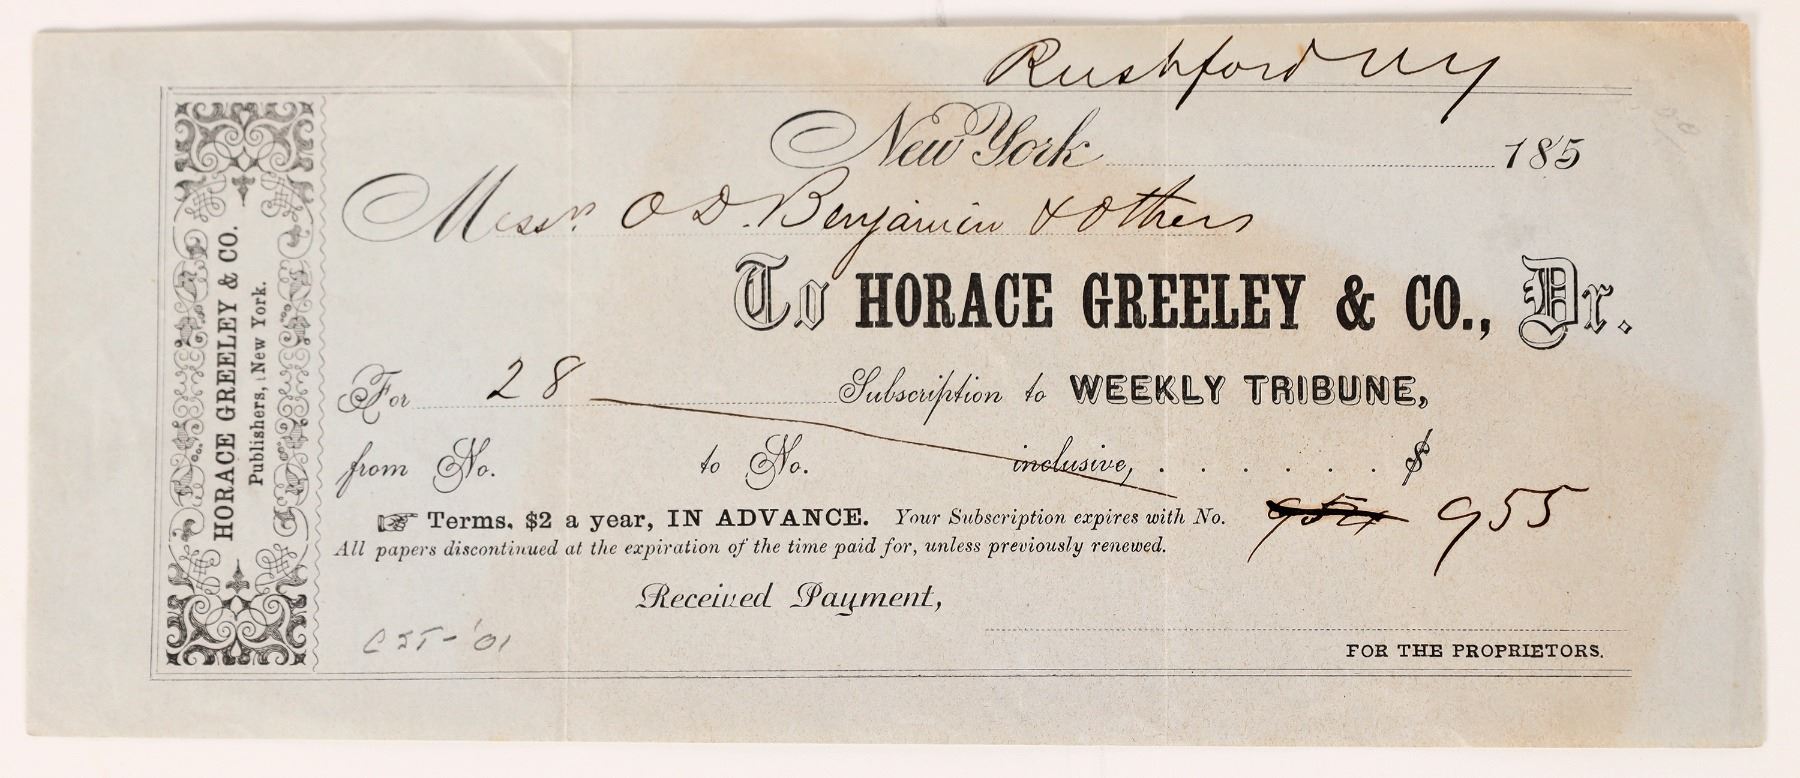 Rushford NY
New York 185
Messrs. O D. Benjamin & Others
To HORACE GREELEY & CO., Dr.
For 28 Subscription to WEEKLY TRIBUNE,
from No. to No. inclusive, . . . . . . $
Terms, $2 a year, IN ADVANCE. Your Subscription expires with No. 954 955
All papers discontinued at the expiration of the time paid for, unless previously renewed.
Received Payment,
FOR THE PROPRIETORS.
HORACE GREELEY & CO.
Publishers, New York.